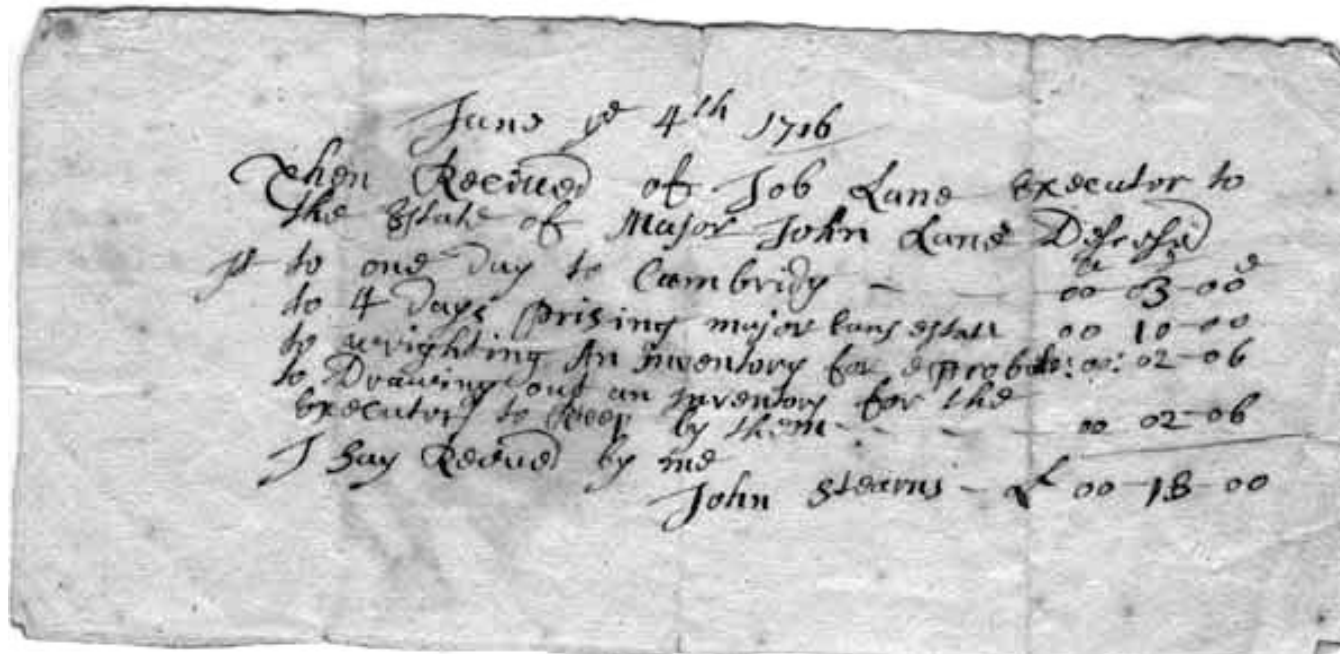 June ye 4th 1716
Then Receiued of Job Lane executor to
the estate of Major John Lane
to one day to Cambridg — — 00 03-00
to 4 days prising major Lans estate 00 10-00
to wrighting An Inventory for probate: 00: 02-06
to Drawing out an inventory for the
executors to keep by them — — — 00 02-06
I Say Receued by me
John Stearns — £ 00-18-00